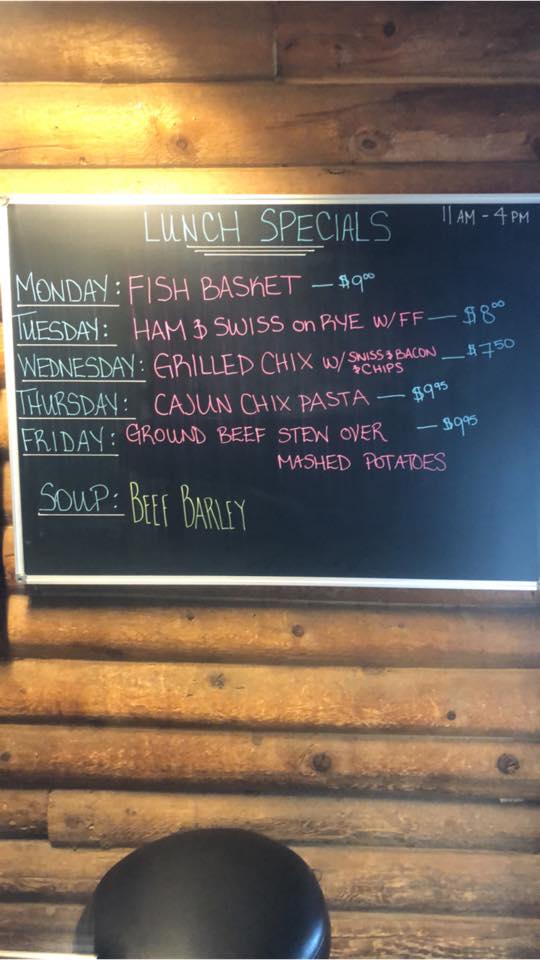 LUNCH SPECIALS 11 AM - 4 PM
MONDAY: FISH BASKET - $9.00
TUESDAY: HAM & SWISS on RYE W/FF - $8.00
WEDNESDAY: GRILLED CHIX W/ SWISS & BACON - $7.50
& CHIPS
THURSDAY: CAJUN CHIX PASTA - $9.95
FRIDAY: GROUND BEEF STEW OVER - $9.95
MASHED POTATOES
SOUP: BEEF BARLEY